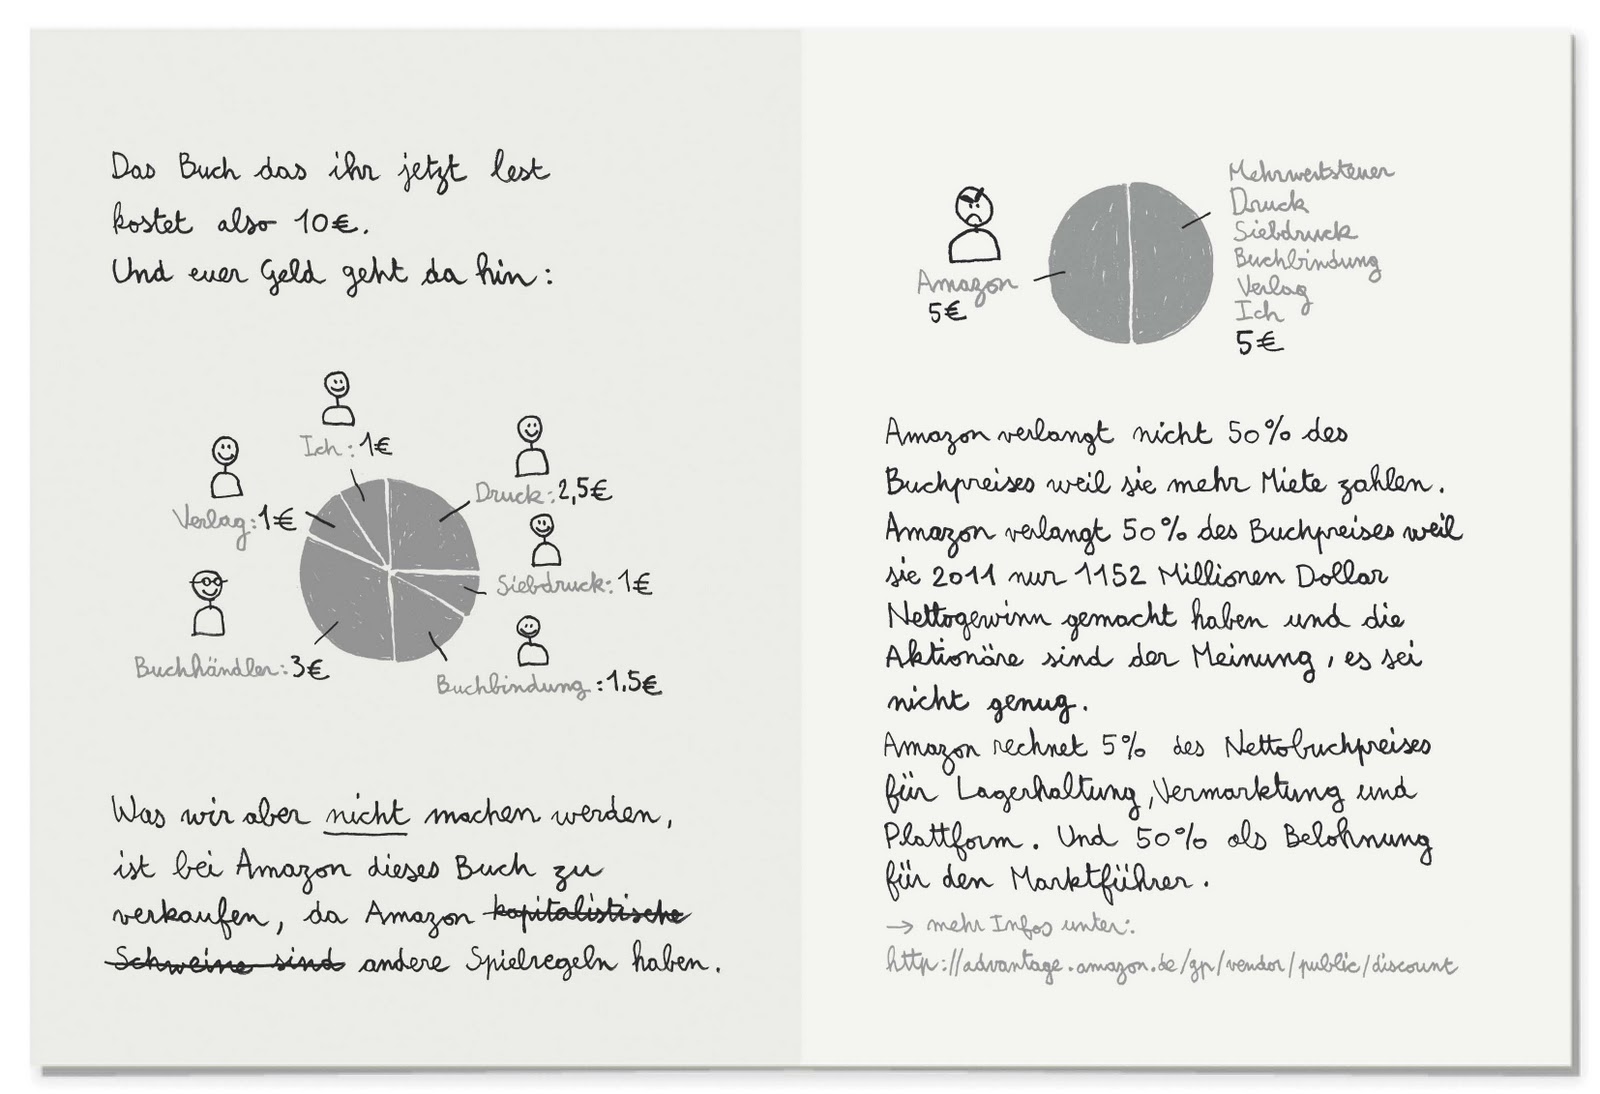 Das Buch das ihr jetzt lest
kostet also 10€.
Und euer Geld geht da hin:
Ich: 1€
Druck: 2,5€
Verlag: 1€
Siebdruck: 1€
Buchhändler: 3€
Buchbindung: 1,5€
Was wir aber nicht machen werden,
ist bei Amazon dieses Buch zu
verkaufen, da Amazon kapitalistische
Schweine sind andere Spielregeln haben.
Amazon
5€
Mehrwertsteuer
Druck
Siebdruck
Buchbindung
Verlag
Ich
5€
Amazon verlangt nicht 50% des
Buchpreises weil sie mehr Miete zahlen.
Amazon verlangt 50% des Buchpreises weil
sie 2011 nur 1152 Millionen Dollar
Nettogewinn gemacht haben und die
Aktionäre sind der Meinung, es sei
nicht genug.
Amazon rechnet 5% des Nettobuchpreises
für Lagerhaltung, Vermarktung und
Plattform. Und 50% als Belohnung
für den Marktführer.
→ mehr Infos unter:
http://advantage.amazon.de/gp/vendor/public/discount